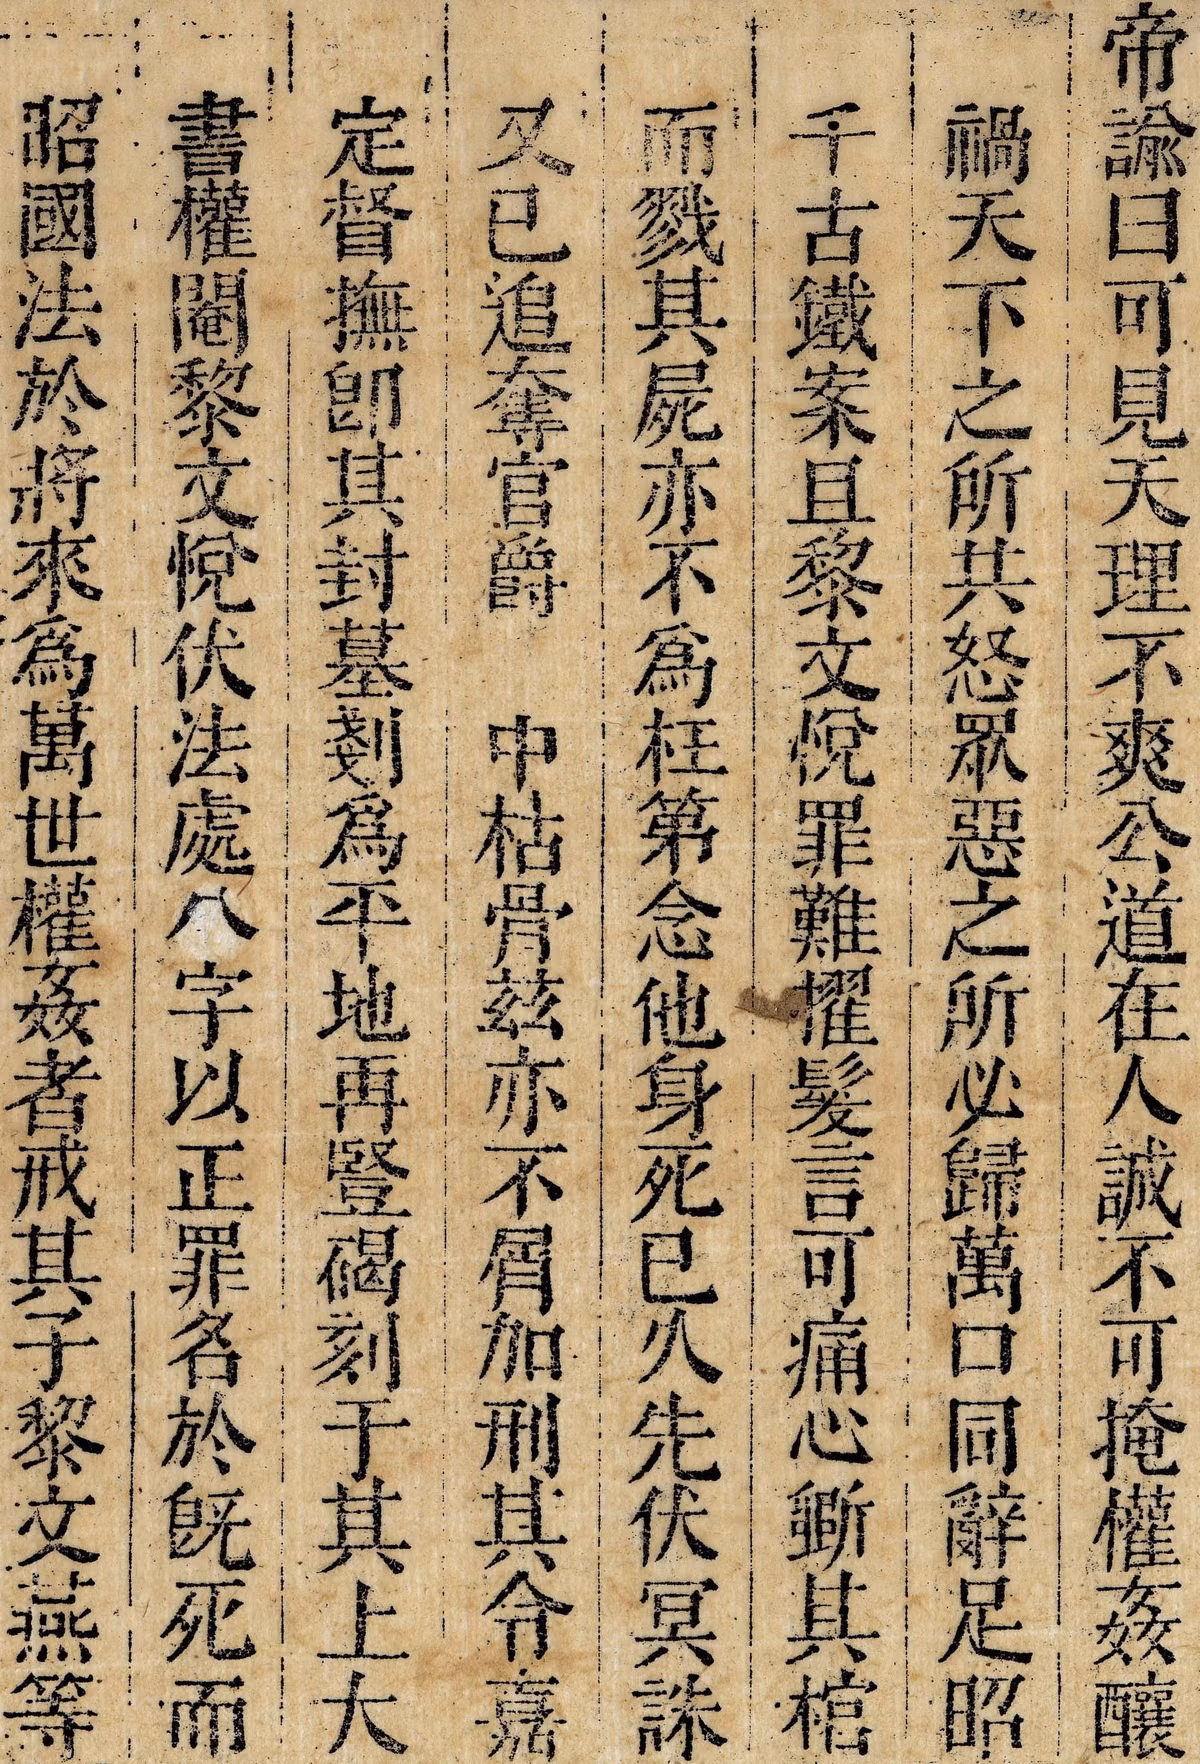 帝諭曰可見天理不爽公道在人誠不可掩權姦釀
禍天下之所共怒眾惡之所必歸萬口同辭足昭
千古鐵案且黎文悅罪難擢髮言可痛心斲其棺
而戮其屍亦不為枉第念他身死已久先伏冥誅
又已追奪官爵 中枯骨茲亦不屑加刑其令嘉
定督撫卽其封墓剗為平地再豎碣刻于其上大
書權閹黎文悅伏法處八字以正罪名於旣死而
昭國法於將來為萬世權姦者戒其子黎文燕等